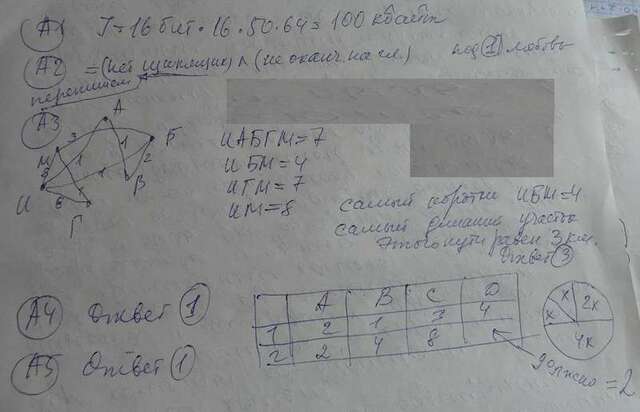 А1 I = 16 бит · 16 · 50 · 64 = 100 кбайт
А2 = (нет шипящих) ∧ (не оканч. на гл.) под 1 любовь
перепишем
А3
А
Б
М
И
Г
В
3
1
1
1
2
8
6
1
ИАБГМ = 7
ИБМ = 4
ИГМ = 7
ИМ = 8
самый коротки ИБМ = 4
самый длинный участок
Этого пути равен 3 км.
Ответ 3
А4 Ответ 1
А5 Ответ 1
A B C D
1 2 1 3 4
2 2 4 8
должно = 2
x 2x
x 4x